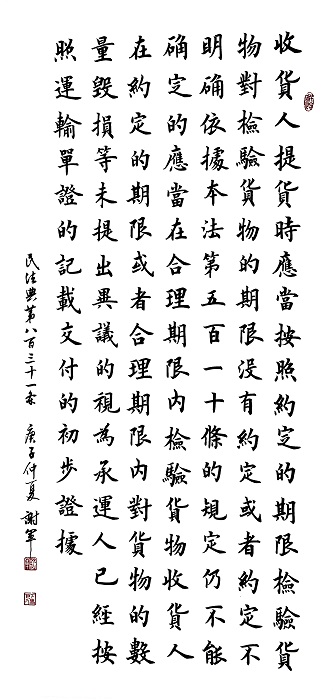 收貨人提貨時應當按照約定的期限檢驗貨
物對檢驗貨物的期限没有約定或者約定不
明确依據本法第五百一十條的規定仍不能
确定的應當在合理期限内檢驗貨物收貨人
在約定的期限或者合理期限内對貨物的數
量毀損等未提出異議的視為承運人已經按
照運輸單證的記載交付的初步證據
民法典第八百三十一条 庚子仲夏 謝軍